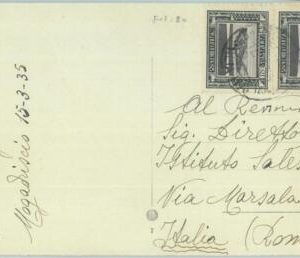 Mogadiscio 15-3-35
Al Rev
Sig. Diretto
Istituto Sales
Via Marsala
Italia (Rom